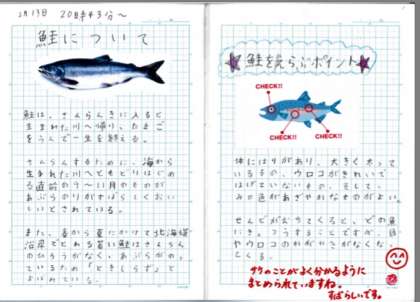 月13日 20時43分～
鮭について
鮭は、さんらんきに入ると
生まれた川へ帰り、たまご
をうんで一生を終える。
さんらんするために、海から
生まれた川へともどりはじめ
る直前の9～11月のものが
あぶらのりがすばらしくおい
しいとされている。
また、春から夏にかけて北海道
沿岸でとれる若い鮭はさんらん
のひつようがなく、あぶらがのっ
ているため「ときしらず」と
よばれている。
鮭をえらぶポイント
CHECK!!
CHECK!!
CHECK!!
体にはりがあり、大きく太って
いるもの、ウロコがきれいで
はげていないもの、そして、
みの色があざやかなものがよい。
せんどがおちてくると、どの魚
目
やウロコのかがやきがなくな
サケのことがよく分かるように
まとめられていますね。
すばらしいです。